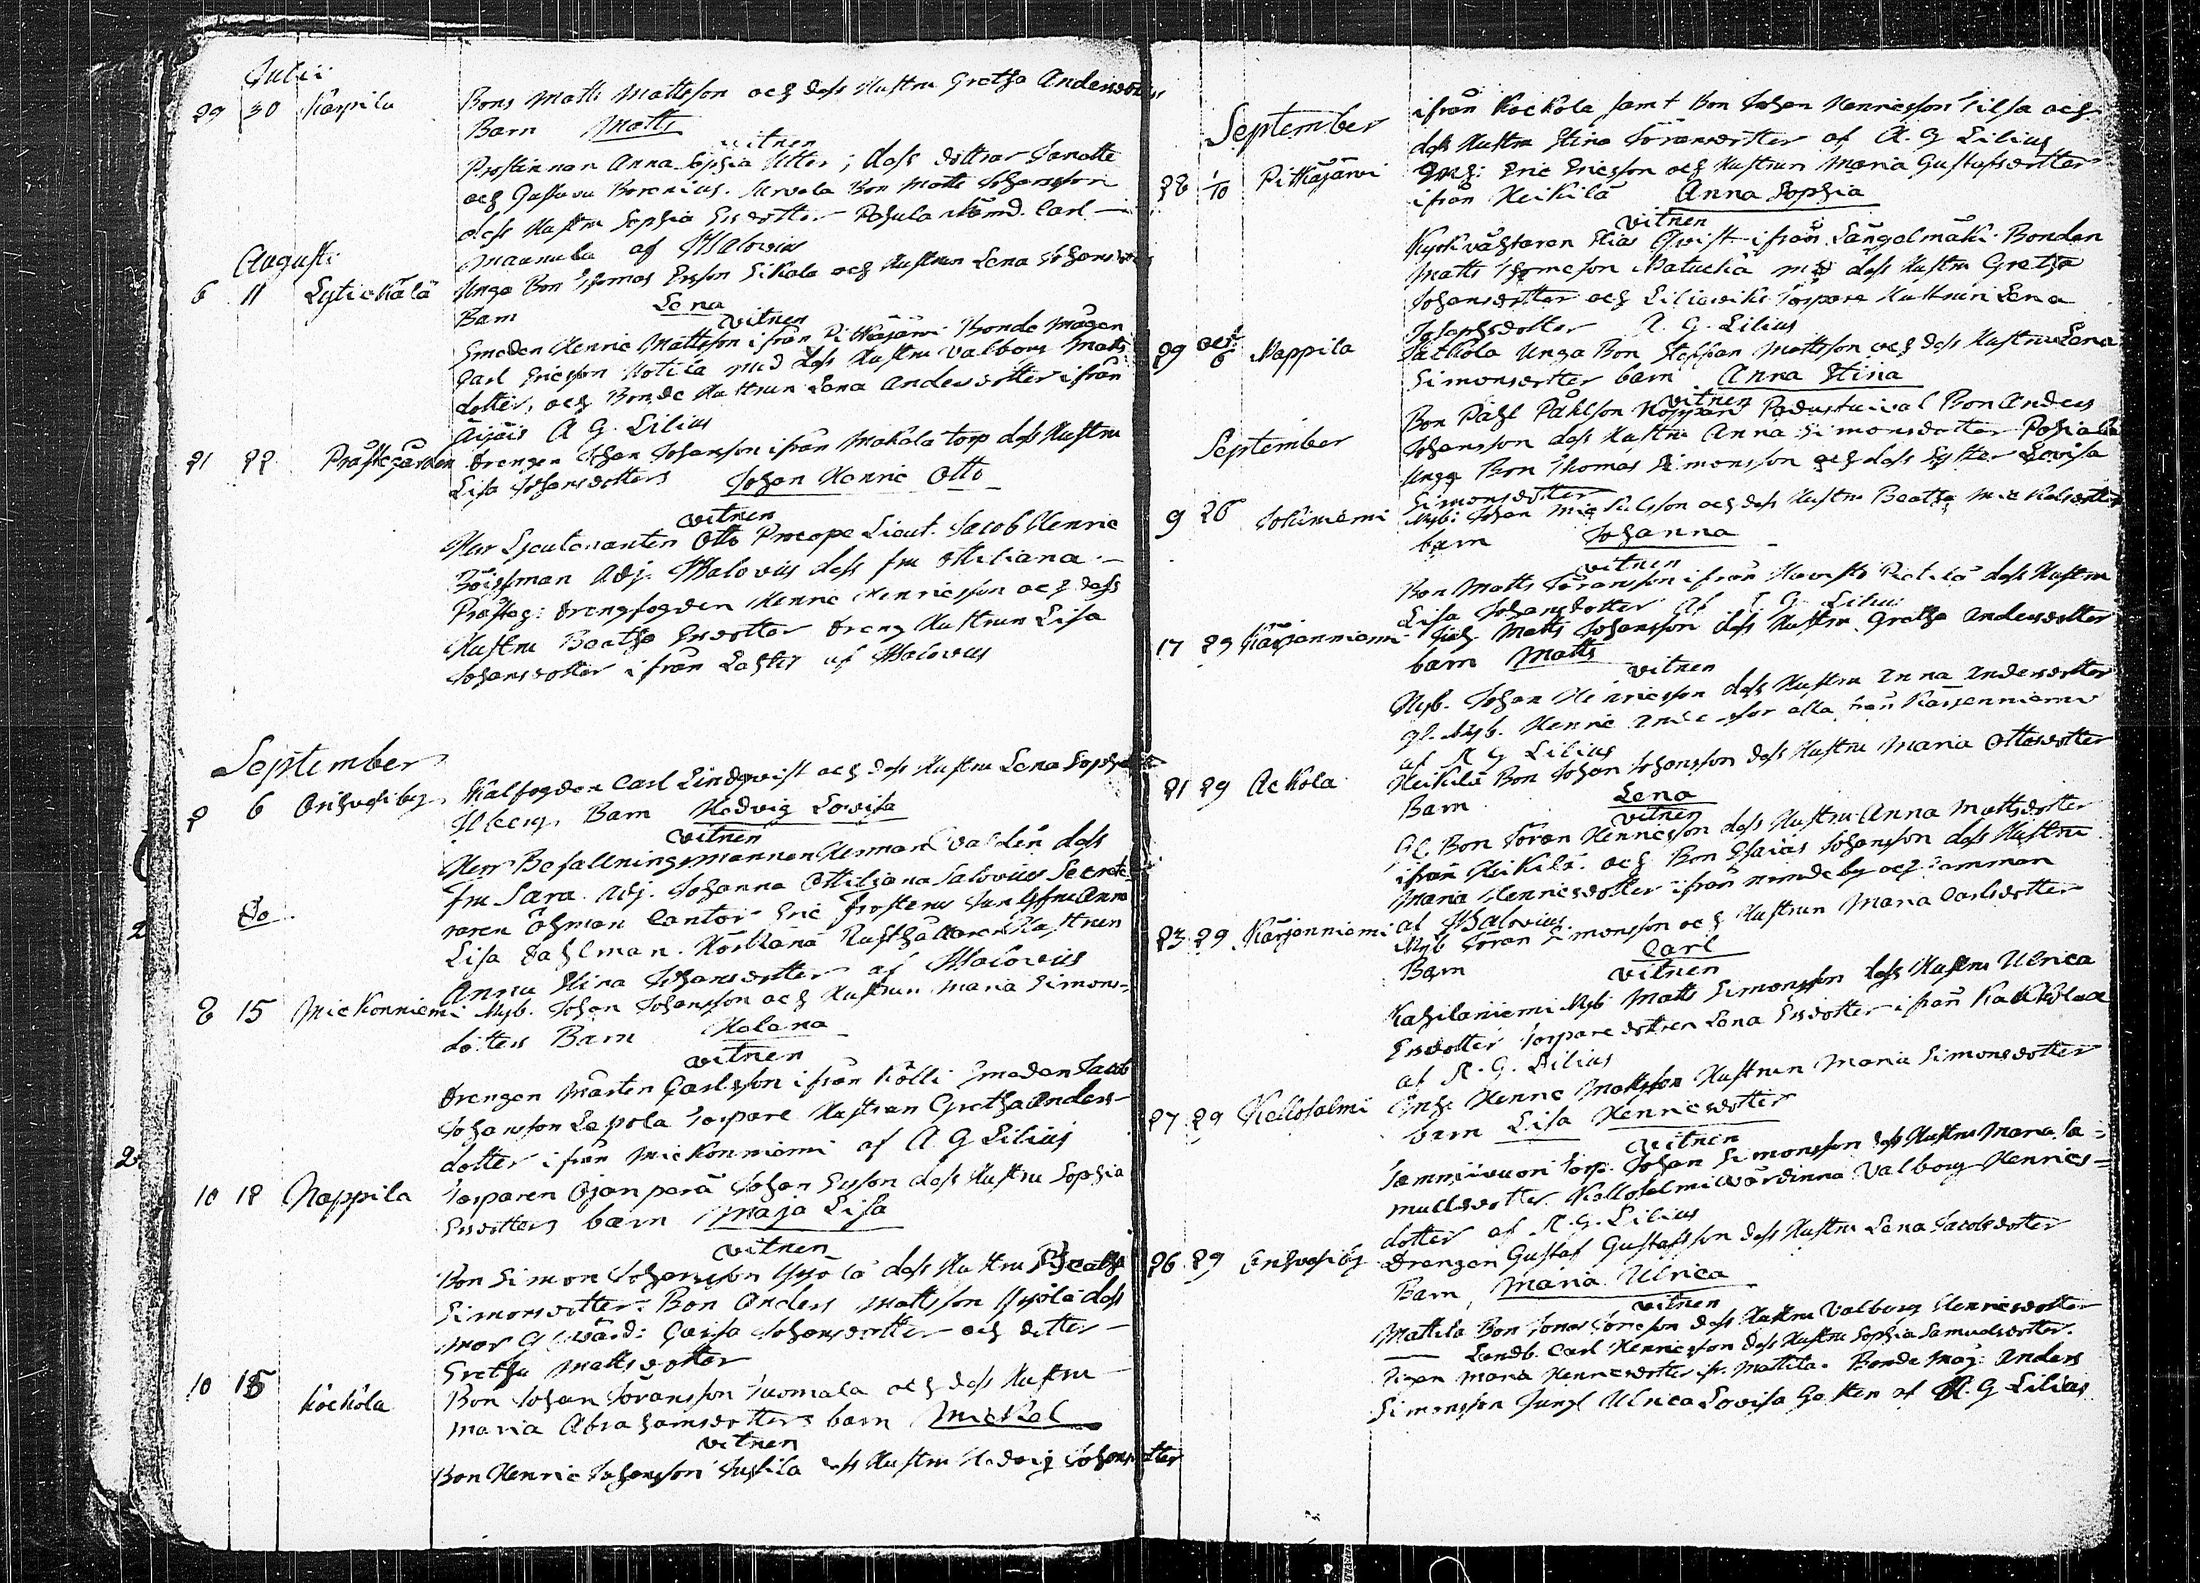 Julii
29 30 Karpila Bons Matts Mattsson och dess Hustru Gretha Andersdotters
Barn Matts
vitnen
Prostinnan Anna Sophia Utter; dess döttrar Janette
och Gustava Boronius. Bon Matts Johansson
dess Hustru Sophia Ersdotter Pohjula Nämd. Carl
Maunula af Walovius
Augusti
6 11 Lytickälä Unga Bon Thomas Ersson Sikala och Hustrun Lena Johansdotters
Barn Lena
vitnen
Smeden Henric Mattsson ifrån Pitkäjärvi Bonde Mågen
Carl Ericsson Kotila med dess Hustru Valborg Matts
dotter, och Bonde Hustrun Lena Andersdotter ifrån
Äijäis A G. Lilius
21 22 Prästegården Drengen Johan Johansson ifrån Makala torp dess Hustru
Lisa Johansdotters Johan Henric Otto
vitnen
Herr Lieutenanten Otto Procope Lieut. Jacob Henric
Böisman Adj. Walovius dess fru Ottiliana
Prästeg: drengfogden Henric Henricsson och dess
Hustru Beatha Ersdotter dreng Hustrun Lisa
Johansdotter ifrån Lahtis af Walovius
September
2 6 Orihvesiby Kalfogden Carl Lindqvist och dess Hustru Lena Sophia
Barn Hedvig Lovisa
vitnen
Herr Befallningsmannen Herman Valdén dess
fru Sara. Adj. Johanna Ottiljana Salovius Secrete
raren Öhman Cantor Eric Frosterus Jungfru Anna
Do
Lisa Dahlman. Rusthållaren Hustrun
Anna Stina Johansdotter af Walovius
8 15 Mickonniemi Nyb. Johan Johansson och Hustrun Maria Simons=
dotters Barn Helena
vitnen
Drengen Mårten Carlsson ifrån Kölli Smeden Jacob
Johansson Lepola Torpare Hustrun Gretha Anders
dotter ifrån Mickonniemi af A. G Lilius
10 18 Nappila Torparen Ojanperä Johan Ersson dess Hustru Sophia
Ersdotters barn Maja Lisa
vitnen
Bon Simon Johansson Ypölä dess Hustru Beatha
Simonsdotter: Bon Anders Mattsson Ypölä dess
mor Gl. värd: Caisa Johansdotter och dotter
Gretha Mattsdotter
10 15 Köcköla Bon Johan Göransson Tuomala och dess Hustru
Maria Abrahamsdotters barn Mickel
vitnen
Bon Henric Johansson dess Hustru Hedvig Johansdotter
ifrån Kocköla samt Bon Johan Henricsson Silfa och
September
dess Hustru Stina Göransdotter af A. G Lilius
28 1/10 Pitkäjärvi Inh: Eric Ericsson och Hustrun Maria Gustafsdotter
ifrån Heikilä Anna Sophia
vitnen
Kyrkväktaren Elias Qvist ifrån Längelmäki Bonden
Matts Thomeson Matuckä med dess Hustru Gretha
Johansdotter och Torpare Hustrun Lena
Josephsdotter A. G. Lilius
29 Oct 6 Nappila Unga Bon Steffan Mattsson och dess Hustru Lena
Simonsdotter barn Anna Stina
vitnen
Bon Påhl Påhlson Bon Anders
September
Johansson dess Hustru Anna Simonsdotter
Unga Bon Thomas Simonsson och dess Syster Lovisa
Simonsdotter
9 26 Nyb: Johan Michelsson och dess Hustru Beatha Mickelsdotter
barn Johanna
vitnen
Bon Matts Göransson ifrån Havisto dess Hustru
Lisa Johansdotter af A G. Lilius
17 29 Kärjenniemi Inh Matts Johansson dess Hustru Gretha Andersdotter
barn Matts
vitnen
Nyb. Johan Henricsson dess Hustru Anna Andersdotter
gl. Nyb. Henric Andersson alla från Kärjenniemi
af A G Lilius
21 29 Ackola Heikilä Bon Johan Johansson dess Hustru Maria Ottosdotter
Barn Lena
vitnen
Gl. Bon Göran Henricsson dess Hustru Anna Mattsdotter
ifrån Heikilä och Bon Esaias Johansson dess Hustru
Maria Henricsdotter ifrån och samman
af Walovius
23 29 Kärjenniemi Nyb Göran Simonsson och Hustrun Maria Carlsdotter
Barn Carl
vitnen
Kahilaniemi Nyb Matts Simonsson dess Hustru Ulrica
Ersdotter Torpare dottren Lena Ersdotter ifrån
af A. G. Lilius
27 29 Kellosalmi Inh: Henric Mattsson Hustrun Maria Simonsdotter
barn Lisa Henricsdotter
vitnen
Sammivuori Torp. Johan Simonsson dess Hustru Maria Sa=
muelsdotter Kellosalmi värdinna Valborg Henrics=
dotter af A. G. Lilius
26 29 Orihvesiby Drengen Gustaf Gustafsson dess Hustru Lena Jacobsdotter
Barn Maria Ulrica
vitnen
Mattila Bon Jonas Göransson dess Hustru Valborg Henricsdotter
Landb. Carl Henricsson dess Hustru Sophia Samuelsdotter.
Pigan Maria Henricsdotter ifr. Mattila. Bonde Måg: Anders
Simonsson Jungf Ulrica Lovisa af A. G Lilius
2
2